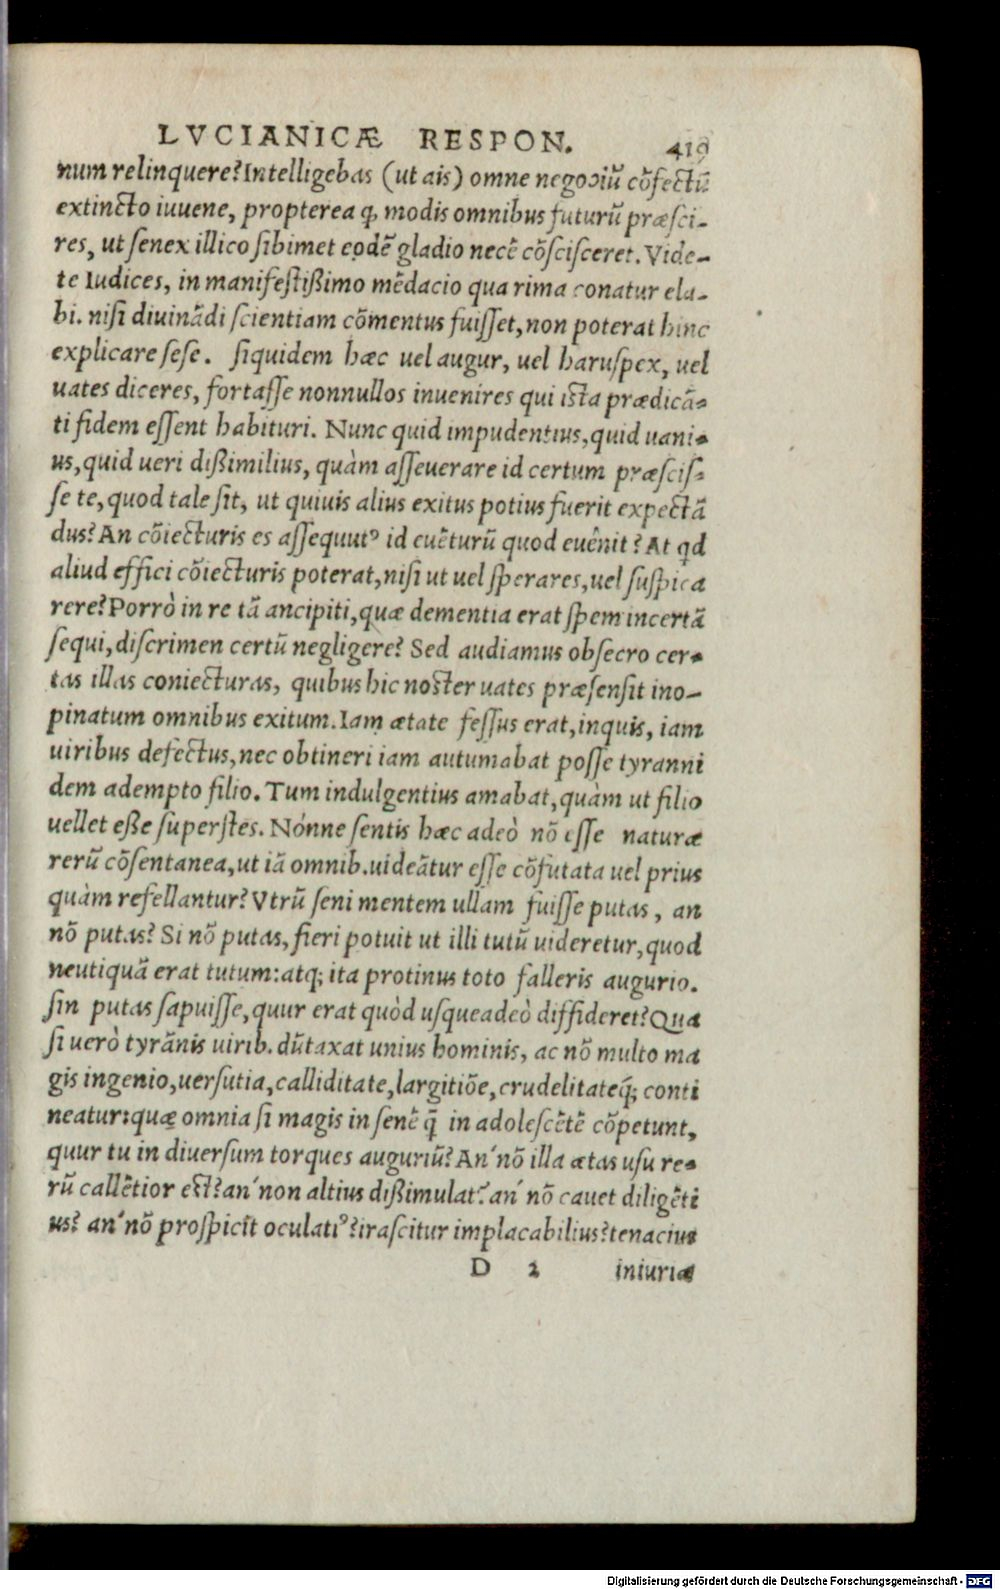 LVCIANICÆ RESPON. 419
num relinquere? Intelligebas (ut ais) omne negociũ cõfectũ
extincto iuuene, propterea ꝙ modis omnibus futurũ præsci-
res, ut senex illico sibimet eodẽ gladio necẽ cõscisceret. Vide-
te Iudices, in manifestißimo mẽdacio qua rima conatur ela-
bi. nisi diuinãdi scientiam cõmentus fuisset, non poterat hinc
explicare sese. siquidem hæc uel augur, uel haruspex, uel
uates diceres, fortasse nonnullos inuenires qui ista prædicã-
ti fidem essent habituri. Nunc quid impudentius, quid uani-
us, quid ueri dißimilius, quàm asseuerare id certum præscis-
se te, quod tale sit, ut quiuis alius exitus potius fuerit expectã
dus? An cõiecturis es assequutꝰ id euẽturũ quod euênit? At qd
aliud effici cõiecturis poterat, nisi ut uel sperares, uel suspica
rere? Porrò in re tã ancipiti, quæ dementia erat spem incertã
sequi, discrimen certũ negligere? Sed audiamus obsecro cer-
tas illas coniecturas, quibus hic noster uates præsensit ino-
pinatum omnibus exitum. Iam ætate fessus erat, inquis, iam
uiribus defectus, nec obtineri iam autumabat posse tyranni
dem adempto filio. Tum indulgentius amabat, quàm ut filio
uellet eße superstes. Nónne sentis hæc adeò nõ esse naturæ
rerũ cõsentanea, ut iã omnib. uideãtur esse cõfutata uel prius
quàm refellantur? Vtrũ seni mentem ullam fuisse putas, an
nõ putas? Si nõ putas, fieri potuit ut illi tutũ uideretur, quod
neutiquã erat tutum: atq; ita protinus toto falleris augurio.
sin putas sapuisse, quur erat quòd usqueadeò diffideret? Qua
si uerò tyrãnis uirib. dũtaxat unius hominis, ac nõ multo ma
gis ingenio, uersutia, calliditate, largitiõe, crudelitateq́; conti
neatur: quæ omnia si magis in senẽ q̃ in adolescẽtẽ cõpetunt,
quur tu in diuersum torques auguriũ? An´nõ illa ætas usu re-
rũ callẽtior est? an´non altius dißimulat? an´ nõ cauet diligẽti
us? an´nõ prospicit oculatiꝰ? irascitur implacabilius? tenacius
D 2 iniuriæ
Digitalisierung gefördert durch die Deutsche Forschungsgemeinschaft - DFG